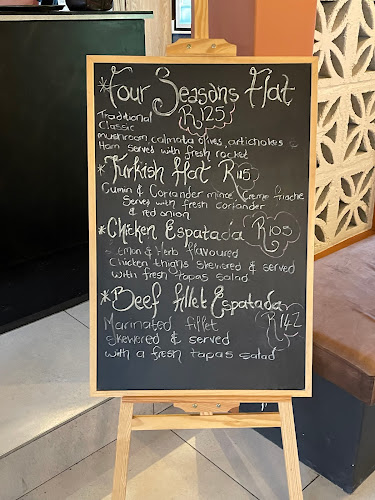 *Four Seasons Flat
R125
Traditional
Classic
mushroom, calmata olives, artichokes &
Ham served with fresh rocket
*Turkish flat R115
Cumin & Coriander mince, Creme friache
Served with fresh coriander
& red onion
*Chicken Espatada R105
Lemon & Herb flavoured
Chicken thighs skewered & served
with fresh tapas salad
*Beef fillet Espatada
R142
Marinated fillet
skewered & served
with a fresh tapas salad